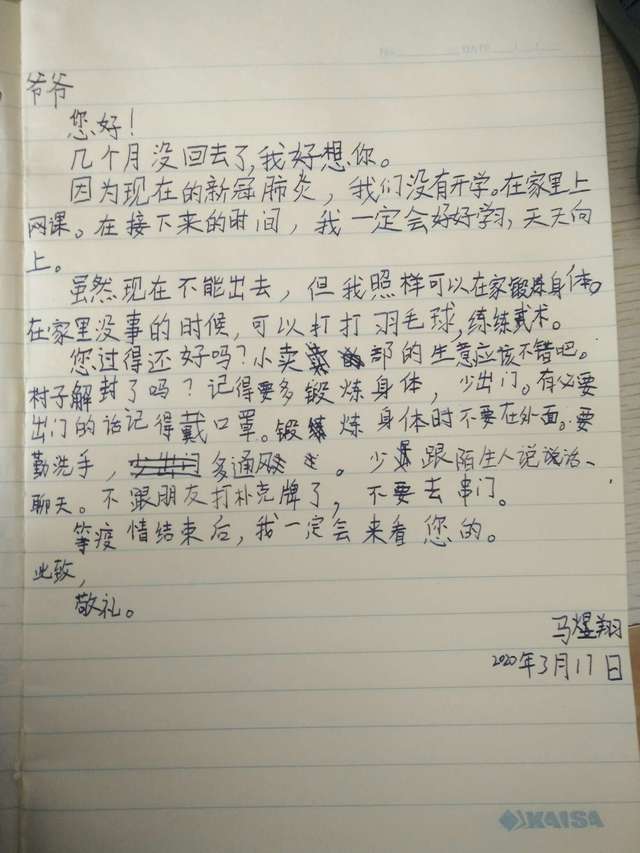 No. DATE / /
爷爷
您好！
几个月没回去了,我好想你。
因为现在的新冠肺炎，我们没有开学。在家里上
网课。在接下来的时间，我一定会好好学习,天天向
上。
虽然现在不能出去，但我照样可以在家锻炼身体。
在家里没事的时候,可以打打羽毛球,练练武术。
您过得还好吗？小卖部的生意应该不错吧。
村子解封了吗？记得要多锻炼身体，少出门。有必要
出门的话记得戴口罩。锻炼身体时不要在外面。要
勤洗手，多通风。少跟陌生人说说话、
聊天。不跟朋友打扑克牌了，不要去串门。
等疫情结束后,我一定会来看您的。
此致,
敬礼。
马煜翔
2020年3月17日
KAISA